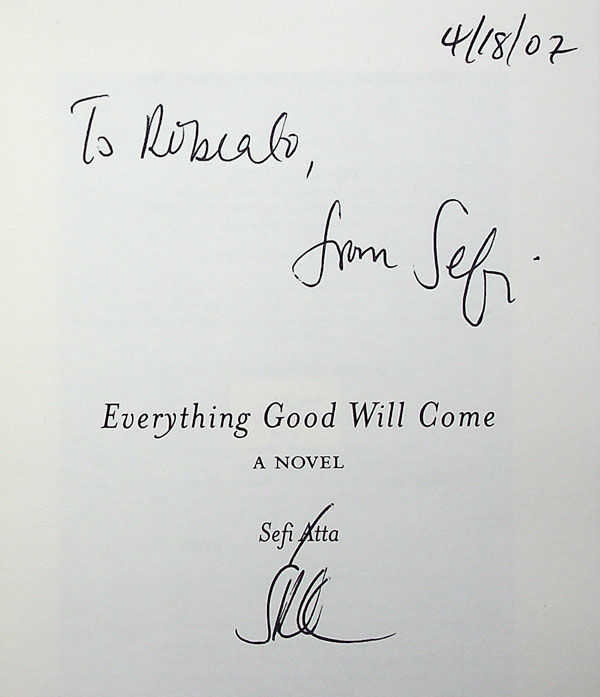 4/18/07
To
from Sefi
Everything Good Will Come
A NOVEL
Sefi Atta